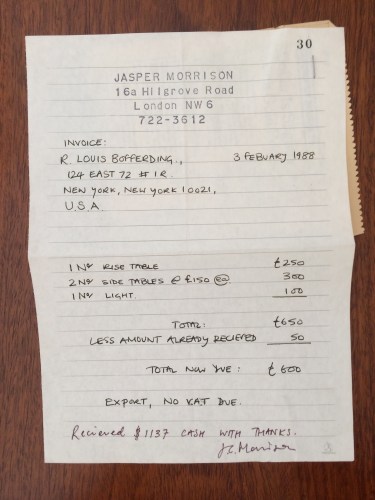 30
JASPER MORRISON
16a Hilgrove Road
London NW6
722-3612
INVOICE:
R. LOUIS BOFFERDING., 3 FEBUARY 1988
124 EAST 72 # 1R.
NEW YORK, NEW YORK 10021,
U.S.A.
1 Nº RISE TABLE £250
2 Nº SIDE TABLES @ £150 ea 300
1 Nº LIGHT. 100
TOTAL: £650
LESS AMOUNT ALREADY RECIEVED 50
TOTAL NOW DUE: £600
EXPORT, NO V.A.T. DUE.
Recieved $1137 CASH WITH THANKS.
J. Morrison